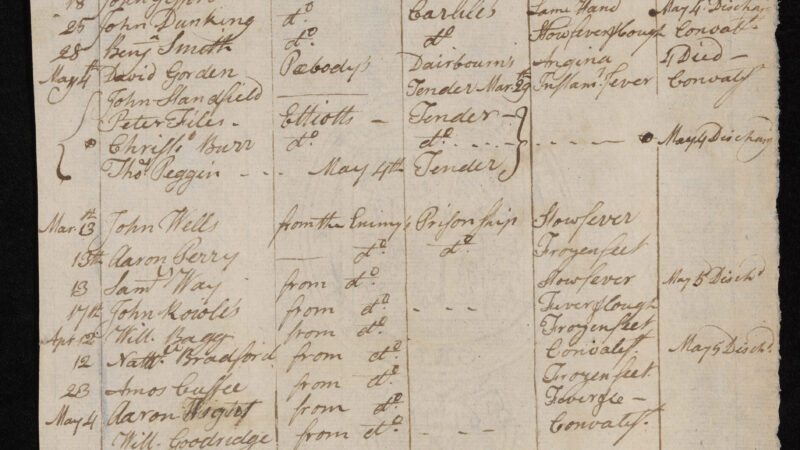 18 John
25 John Dunking do. Carlile's Lame Hand May 4 Dischar
28 Benjn Smith do. do. Howsfever&Cough Convalst.
May 4th David Gorden Peabody's Dairbourns Angina 4 Died —
John Standfield Tender Mar. 29 Inflamy. Fever Convalst.
Peter Files — Elliotts — Tender —
Chrissr. Burr do. do. May 4 Discharg
Thos. Peggin May 4th Tender
Mar. 13th John Wells from the Enemy's Prison ship Howsfever
13th Aaron Perry — do. do. Frozen feet
13 Saml. Way from do. Howsfever May 5 Dischd
17th John Rowles from do. Fever&Cough
Apr 12 Will. Bagg from do. Frozen feet
12 Nathl. Bradford from do. Convalst. May 5 Dischd.
23 Amos Cuffee from do. Frozen feet
May 4 Aaron from do.
Will. Goodridge from do. Convalst.